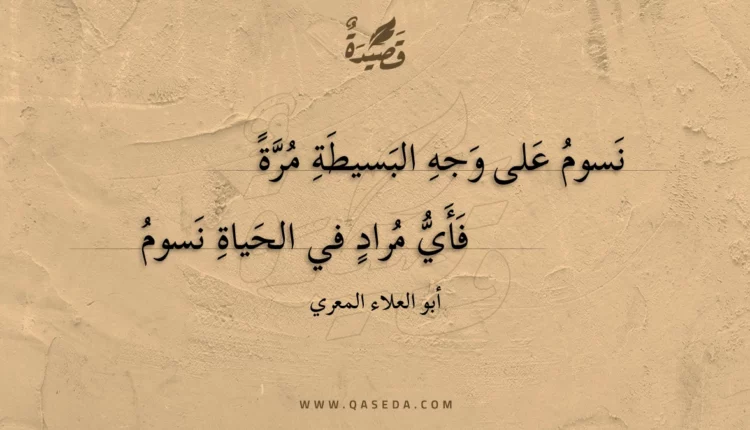 قَصِيدَةٌ
نَسومُ عَلى وَجهِ البَسيطَةِ مُرَّةً
فَأَيُّ مُرادٍ في الحَياةِ نَسومُ
أبو العلاء المعري
WWW.QASEDA.COM